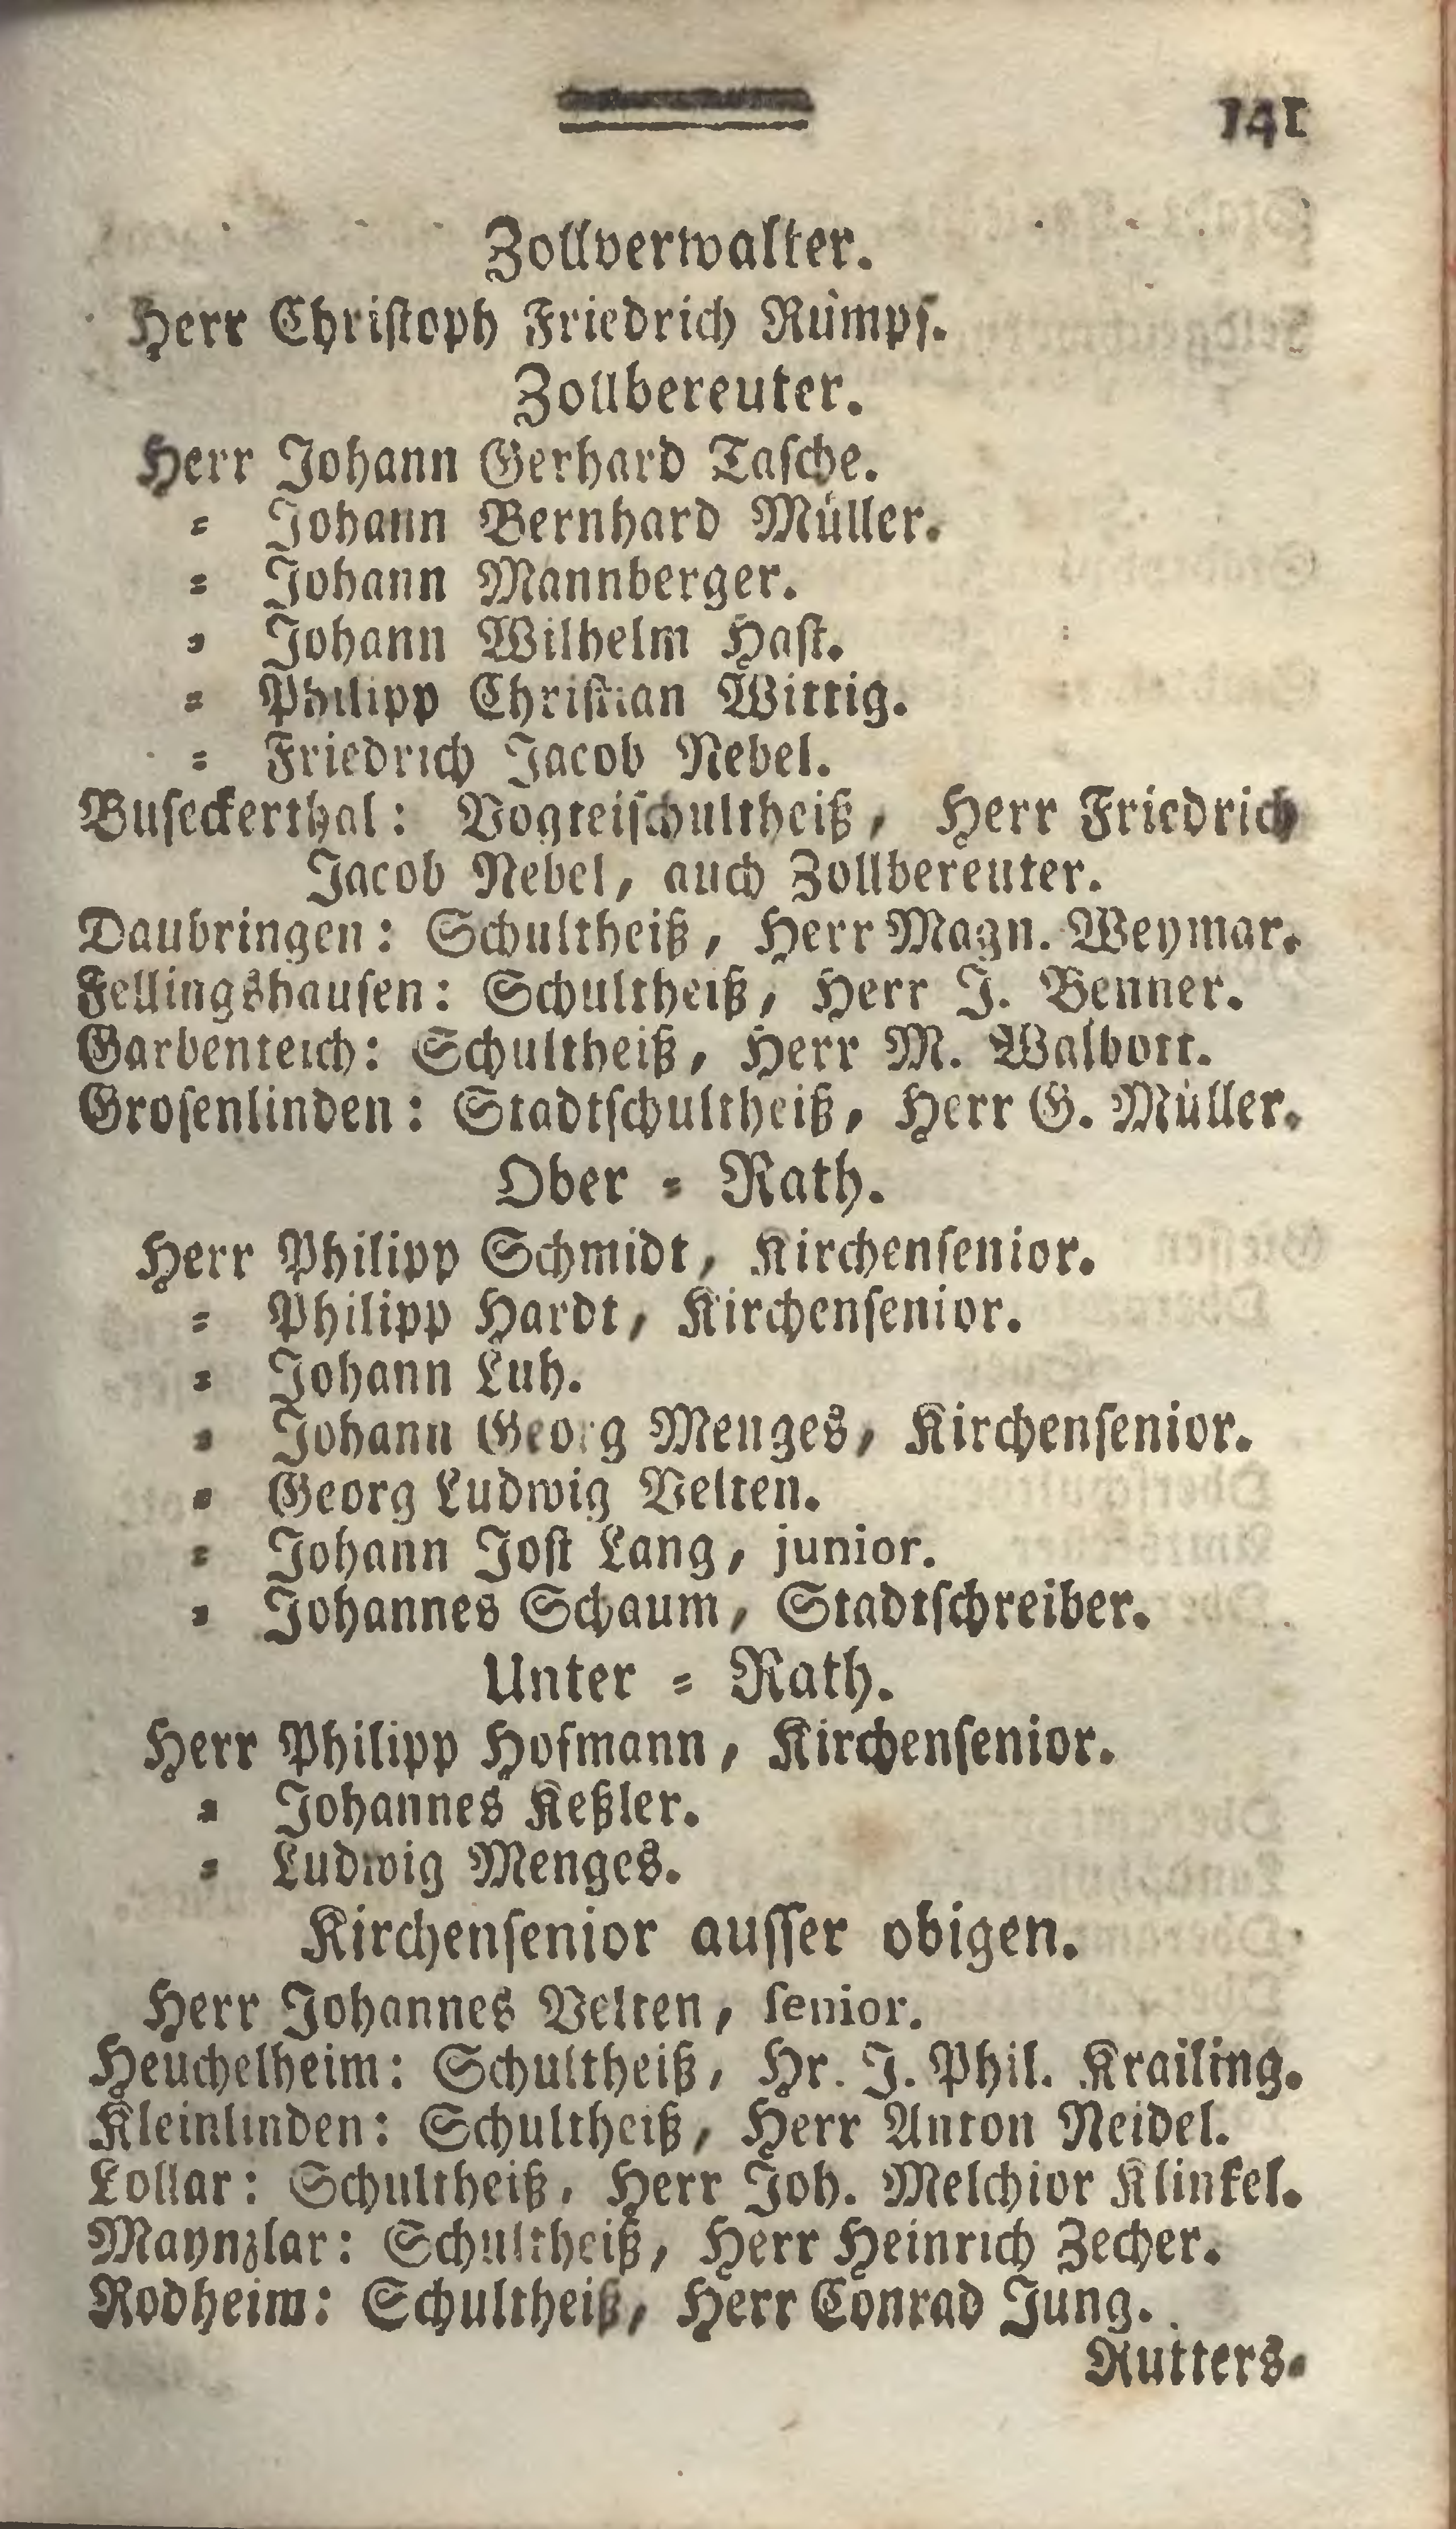 141
Zollverwalter.
Herr Christoph Friedrich Rümpf.
Zollbereuter.
Herr Johann Gerhard Tasche.
= Johann Bernhard Müller.
= Johann Mannberger.
= Johann Wilhelm Hast.
= Philipp Christian Wittig.
= Friedrich Jacob Nebel.
Buseckerthal: Vogteischultheiß, Herr Friedrich
Jacob Nebel, auch Zollbereuter.
Daubringen: Schultheiß, Herr Magn. Weymar.
Fellingshausen: Schultheiß, Herr J. Benner.
Garbenteich: Schultheiß, Herr M. Walbott.
Grosenlinden: Stadtschultheiß, Herr G. Müller.
Ober = Rath.
Herr Philipp Schmidt, Kirchensenior.
= Philipp Hardt, Kirchensenior.
= Johann Luh.
= Johann Georg Menges, Kirchensenior.
= Georg Ludwig Velten.
= Johann Jost Lang, junior.
= Johannes Schaum, Stadtschreiber.
Unter = Rath.
Herr Philipp Hofmann, Kirchensenior.
= Johannes Keßler.
= Ludwig Menges.
Kirchensenior ausser obigen.
Herr Johannes Velten, senior.
Heuchelheim: Schultheiß, Hr. J. Phil. Krailing.
Kleinlinden: Schultheiß, Herr Anton Neidel.
Lollar: Schultheiß, Herr Joh. Melchior Klinkel.
Maynzlar: Schultheiß, Herr Heinrich Zecher.
Rodheim: Schultheiß, Herr Conrad Jung.
Rutters=